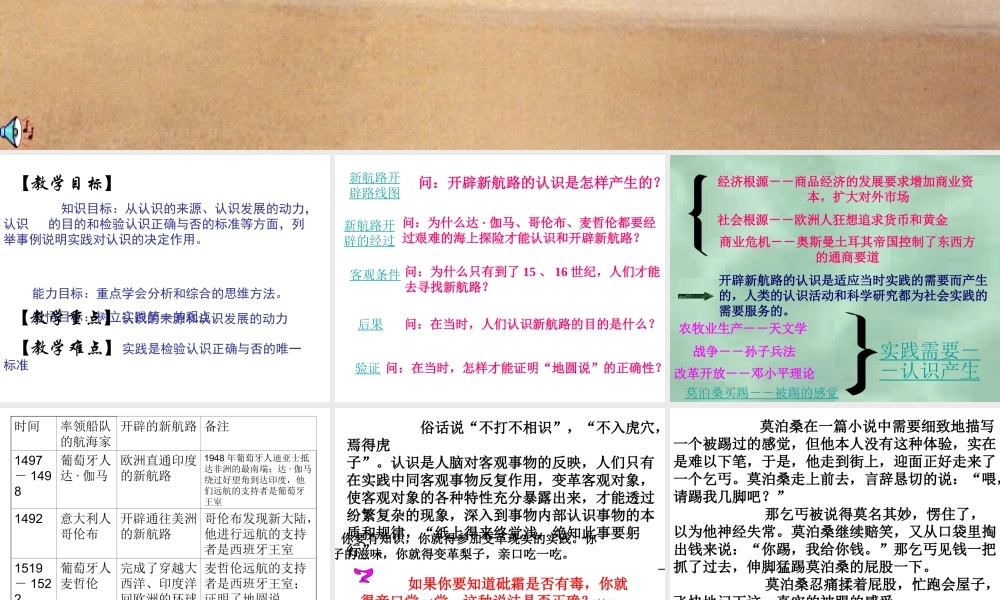 【教学目标】
知识目标：从认识的来源、认识发展的动力，
认识 的目的和检验认识正确与否的标准等方面，列
举事例说明实践对认识的决定作用。
能力目标：重点学会分析和综合的思维方法。
【教学重点】认识的来源和认识发展的动力
【教学难点】实践是检验认识正确与否的唯一
标准
新航路开
辟路线图
问：开辟新航路的认识是怎样产生的？
新航路开
辟的经过
问：为什么达·伽马、哥伦布、麦哲伦都要经
过艰难的海上探险才能认识和开辟新航路？
客观条件
问：为什么只有到了 15 、 16 世纪，人们才能
去寻找新航路？
后果
问：在当时，人们认识新航路的目的是什么？
验证
问：在当时，怎样才能证明“地圆说”的正确性？
经济根源－－商品经济的发展要求增加商业资
本，扩大对外市场
社会根源－－欧洲人狂想追求货币和黄金
商业危机－－奥斯曼土耳其帝国控制了东西方
的通商要道
开辟新航路的认识是适应当时实践的需要而产生
的，人类的认识活动和科学研究都为社会实践的
需要服务的。
农牧业生产－－天文学
战争－－孙子兵法
改革开放－－邓小平理论
莫泊桑买踢－－被踢的感觉
实践需要－
－认识产生
时间
率领船队
的航海家
开辟的新航路
备注
1497
－ 149
8
葡萄牙人
达·伽马
欧洲直通印度
的新航路
1948 年葡萄牙人迪亚士抵
达非洲的最南端；达·伽马
绕过好望角到达印度，他
们远航的支持者是葡萄牙
王室
1492
意大利人
哥伦布
开辟通往美洲
的新航路
哥伦布发现新大陆，
他进行远航的支持
者是西班牙王室
1519
－ 152
2
葡萄牙人
麦哲伦
完成了穿越大
西洋、印度洋
回欧洲的环球
麦哲伦远航的支持
者是西班牙王室；
证明了地圆说
俗话说“不打不相识”，“不入虎穴，
焉得虎
子”。认识是人脑对客观事物的反映，人们只有
在实践中同客观事物反复作用，变革客观对象，
使客观对象的各种特性充分暴露出来，才能透过
纷繁复杂的现象，深入到事物内部认识事物的本
质和规律，“纸上得来终觉浅，绝知此事要躬
你要有知识，你就得参加变革现实的实践。你
子的滋味，你就得变革梨子，亲口吃一吃。
如果你要知道砒霜是否有毒，你就
得亲口尝一尝。这种说法是否正确？
莫泊桑在一篇小说中需要细致地描写
一个被踢过的感觉，但他本人没有这种体验，实在
是难以下笔，于是，他走到街上，迎面正好走来了
一个乞丐。莫泊桑走上前去，言辞恳切的说：“喂，
请踢我几脚吧？”
那乞丐被说得莫名其妙，愣住了，
以为他神经失常。莫泊桑继续赔笑，又从口袋里掏
出钱来说：“你踢，我给你钱。”那乞丐见钱一把
抓了过去，伸脚猛踢莫泊桑的屁股一下。
莫泊桑忍痛揉着屁股，忙跑会屋子，
飞快地记下这一真实的被踢的感受